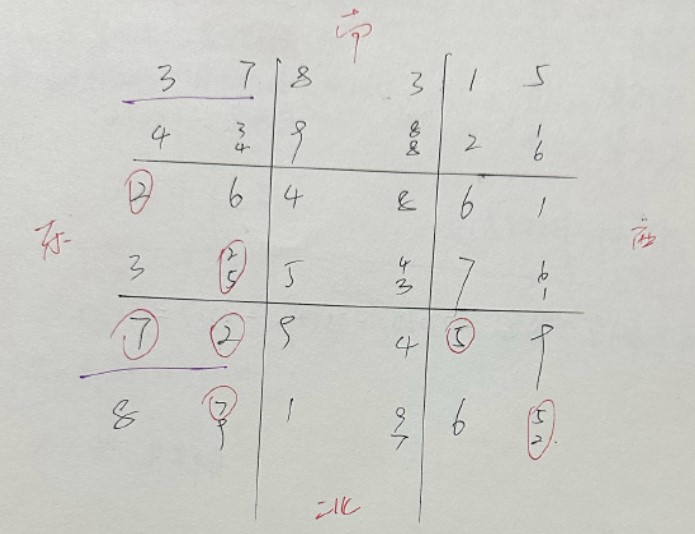 南
3 7 8 3 1 5
4 3 9 8 2 1
4 8 6
2 6 4 8 6 1
东
3 2 5 4 7 6
5 3 1
7 2 9 4 5 9
8 7 1 9 6 5
9 7 2
北